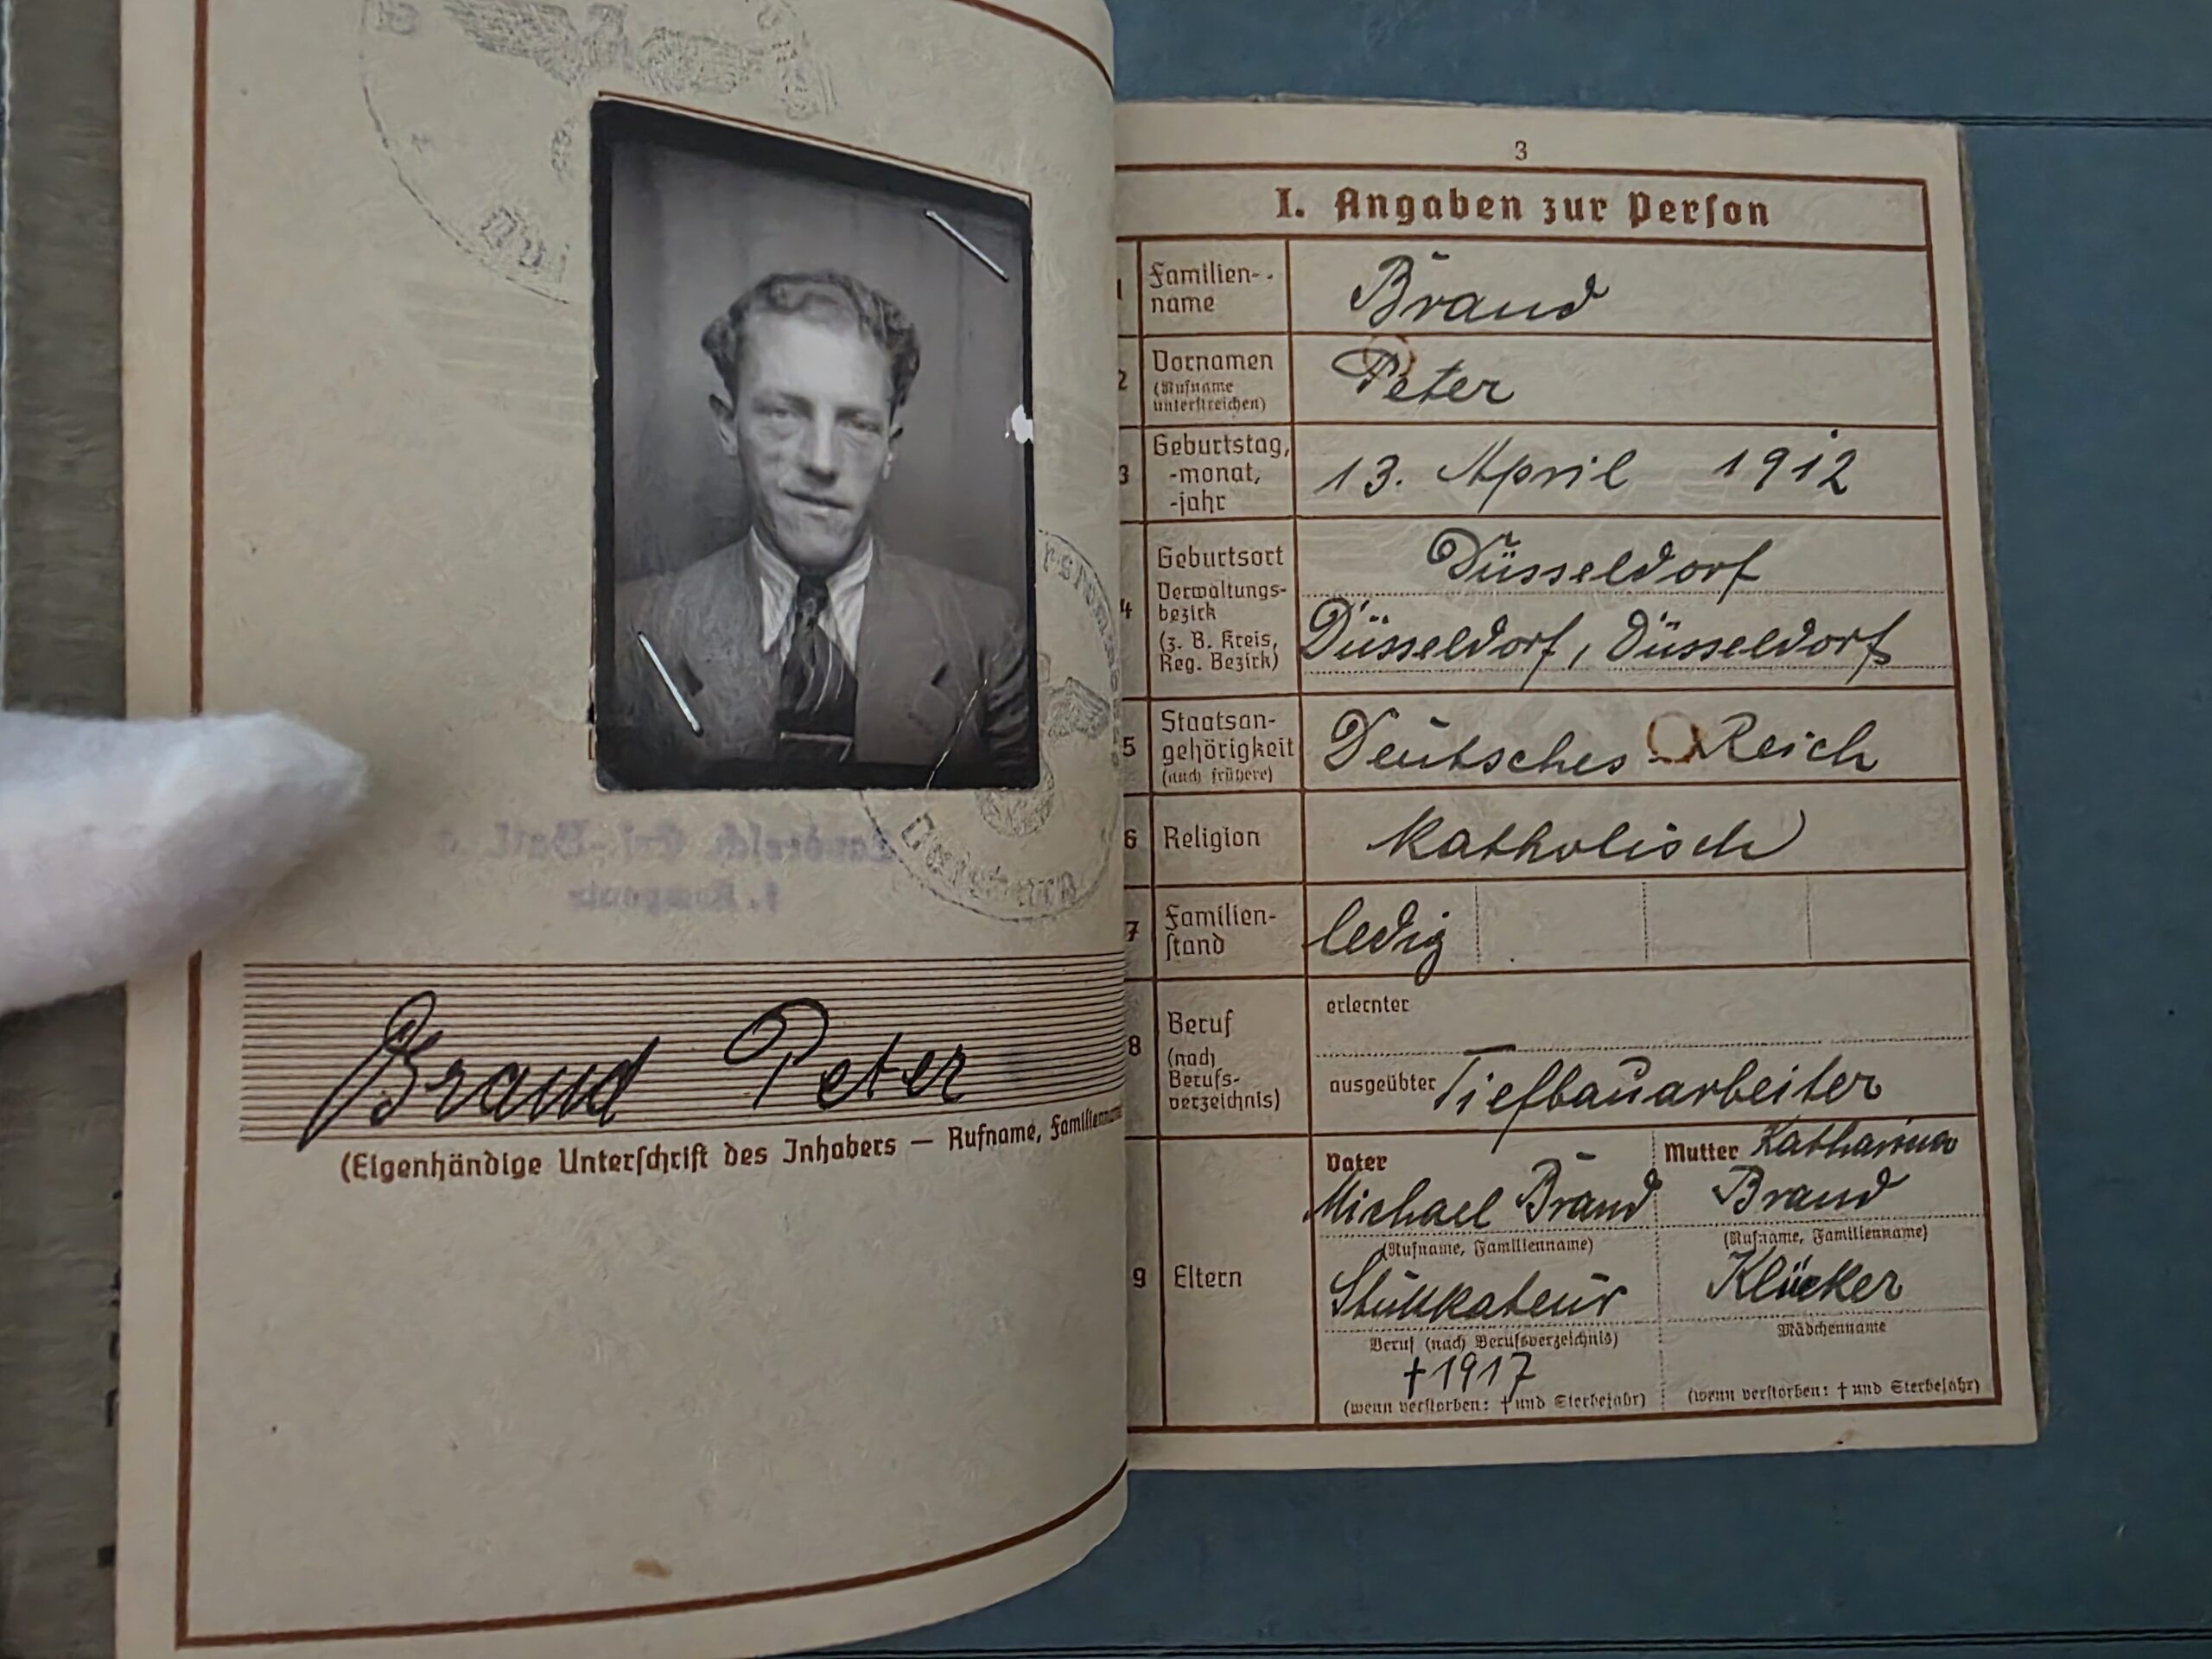 Brand Peter
(Eigenhändige Unterschrift des Inhabers — Rufname, Familienname
3
I. Angaben zur Person
1
Familien-
name
Brand
2
Vornamen
(Rufname
unterstreichen)
Peter
3
Geburtstag,
-monat,
-jahr
13. April 1912
4
Geburtsort
Düsseldorf
Verwaltungs-
bezirk
(z. B. Kreis,
Reg. Bezirk)
Düsseldorf, Düsseldorf
5
Staatsan-
gehörigkeit
(auch frühere)
Deutsches Reich
6
Religion
katholisch
7
Familien-
stand
ledig
8
Beruf
(nach
Berufs-
verzeichnis)
erlernter
ausgeübter Tiefbauarbeiter
9
Eltern
Vater
Michael Brand
(Rufname, Familienname)
Stukkateur
Beruf (nach Berufsverzeichnis)
† 1917
(wenn verstorben: † und Sterbejahr)
Mutter Katharina
Brand
(Rufname, Familienname)
Klücker
Mädchenname
(wenn verstorben: † und Sterbejahr)